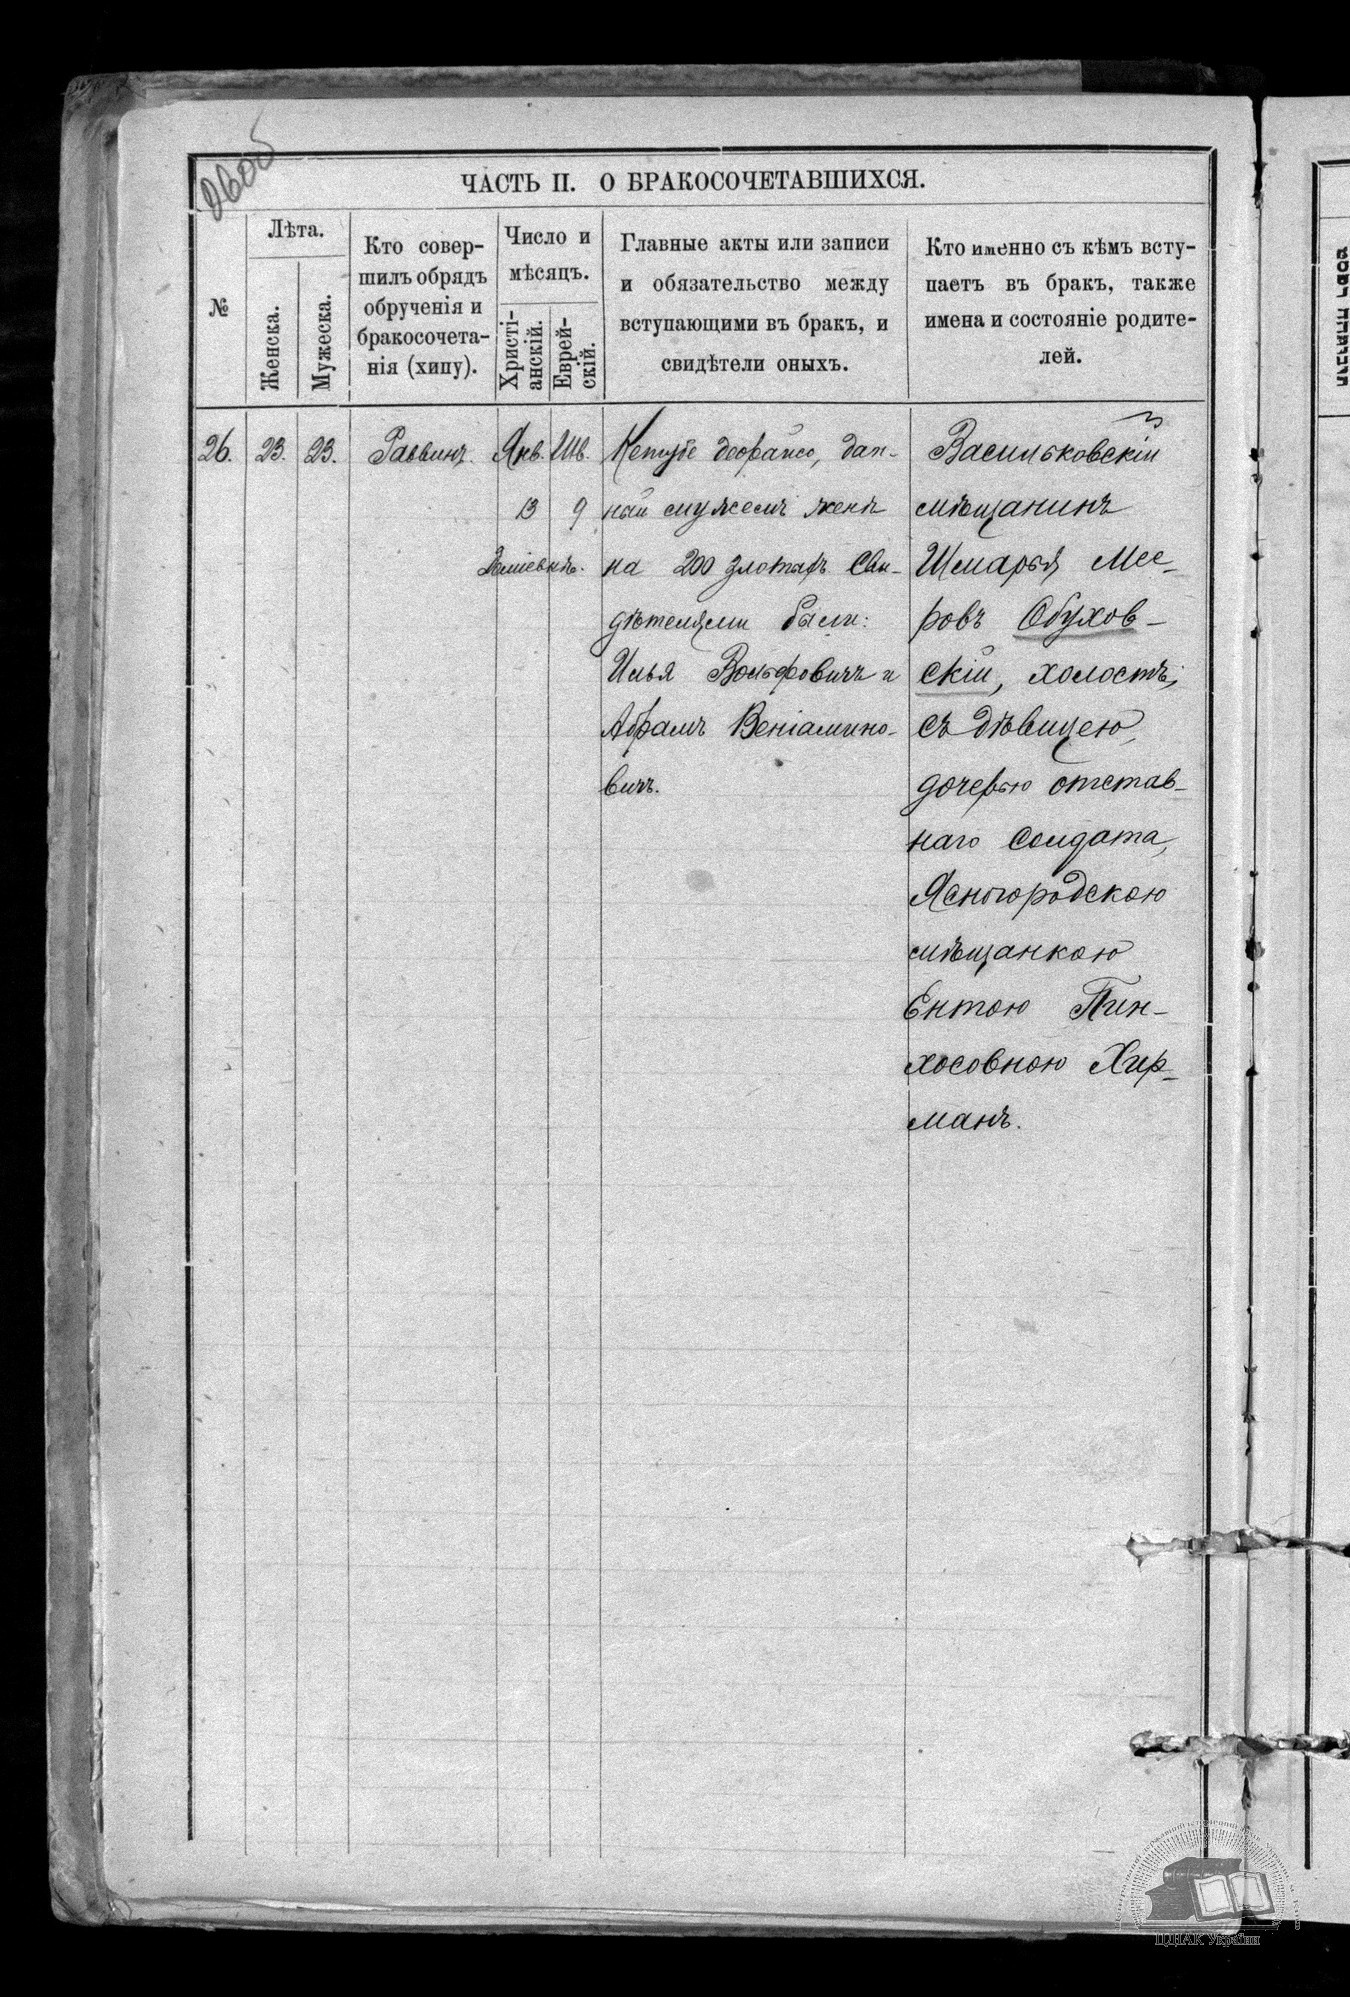 260об
ЧАСТЬ II. О БРАКОСОЧЕТАВШИХСЯ.
№
Лѣта.
Женска.
Мужеска.
Кто совер-
шилъ обрядъ
обрученія и
бракосочета-
нія (хипу).
Число и
мѣсяцъ.
Христі-
анскій.
Еврей-
скій.
Главные акты или записи
и обязательство между
вступающими въ бракъ, и
свидѣтели оныхъ.
Кто именно съ кѣмъ всту-
паетъ въ бракъ, также
имена и состояніе родите-
лей.
26.
23.
23.
Раввинъ.
Янв.
13
Шв.
9
Деміевкѣ.
Кетубе деорайсо, дан-
ной мужемъ женѣ
на 200 злотыхъ Сви-
дѣтелями были:
Илья Вольфовичъ и
Абрамъ Веніамино-
вичъ.
Васильковскій
мѣщанинъ
Шмарья Мее-
ровъ Обухов-
скій, холостъ,
съ дѣвицею,
дочерью отстав-
наго солдата,
Ясногородскою
мѣщанкою
Ентою Пин-
хосовною Хир-
манъ.
ЦДІАК України